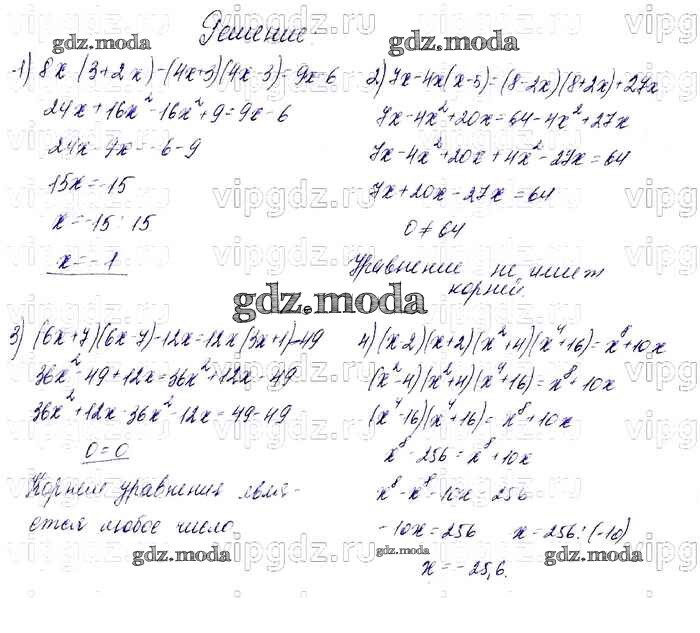 Решение
1) 8x (3+2x)-(4x+3)(4x-3)=9x-6
24x+16x²-16x²+9=9x-6
24x-9x=-6-9
15x=-15
x=-15:15
x=-1
2) 7x-4x(x-5)=(8-2x)(8+2x)+27x
7x-4x²+20x=64-4x²+27x
7x-4x²+20x+4x²-27x=64
7x+20x-27x=64
0≠64
Уравнение не имеет
корней.
gdz.moda
3) (6x+7)(6x-7)-12x=12x(3x+1)-49
36x²-49+12x=36x²+12x-49
36x²+12x-36x²-12x=49-49
0=0
Корнем уравнения явля-
ется любое число
4) (x-2)(x+2)(x²+4)(x⁴+16)=x⁸+10x
(x²-4)(x²+4)(x⁴+16)=x⁸+10x
(x⁴-16)(x⁴+16)=x⁸+10x
x⁸-256=x⁸+10x
x⁸-x⁸-10x=256
-10x=256 x=256:(-10)
x=-25,6.
gdz.moda
gdz.moda
gdz.moda
gdz.moda
vipgdz.ru